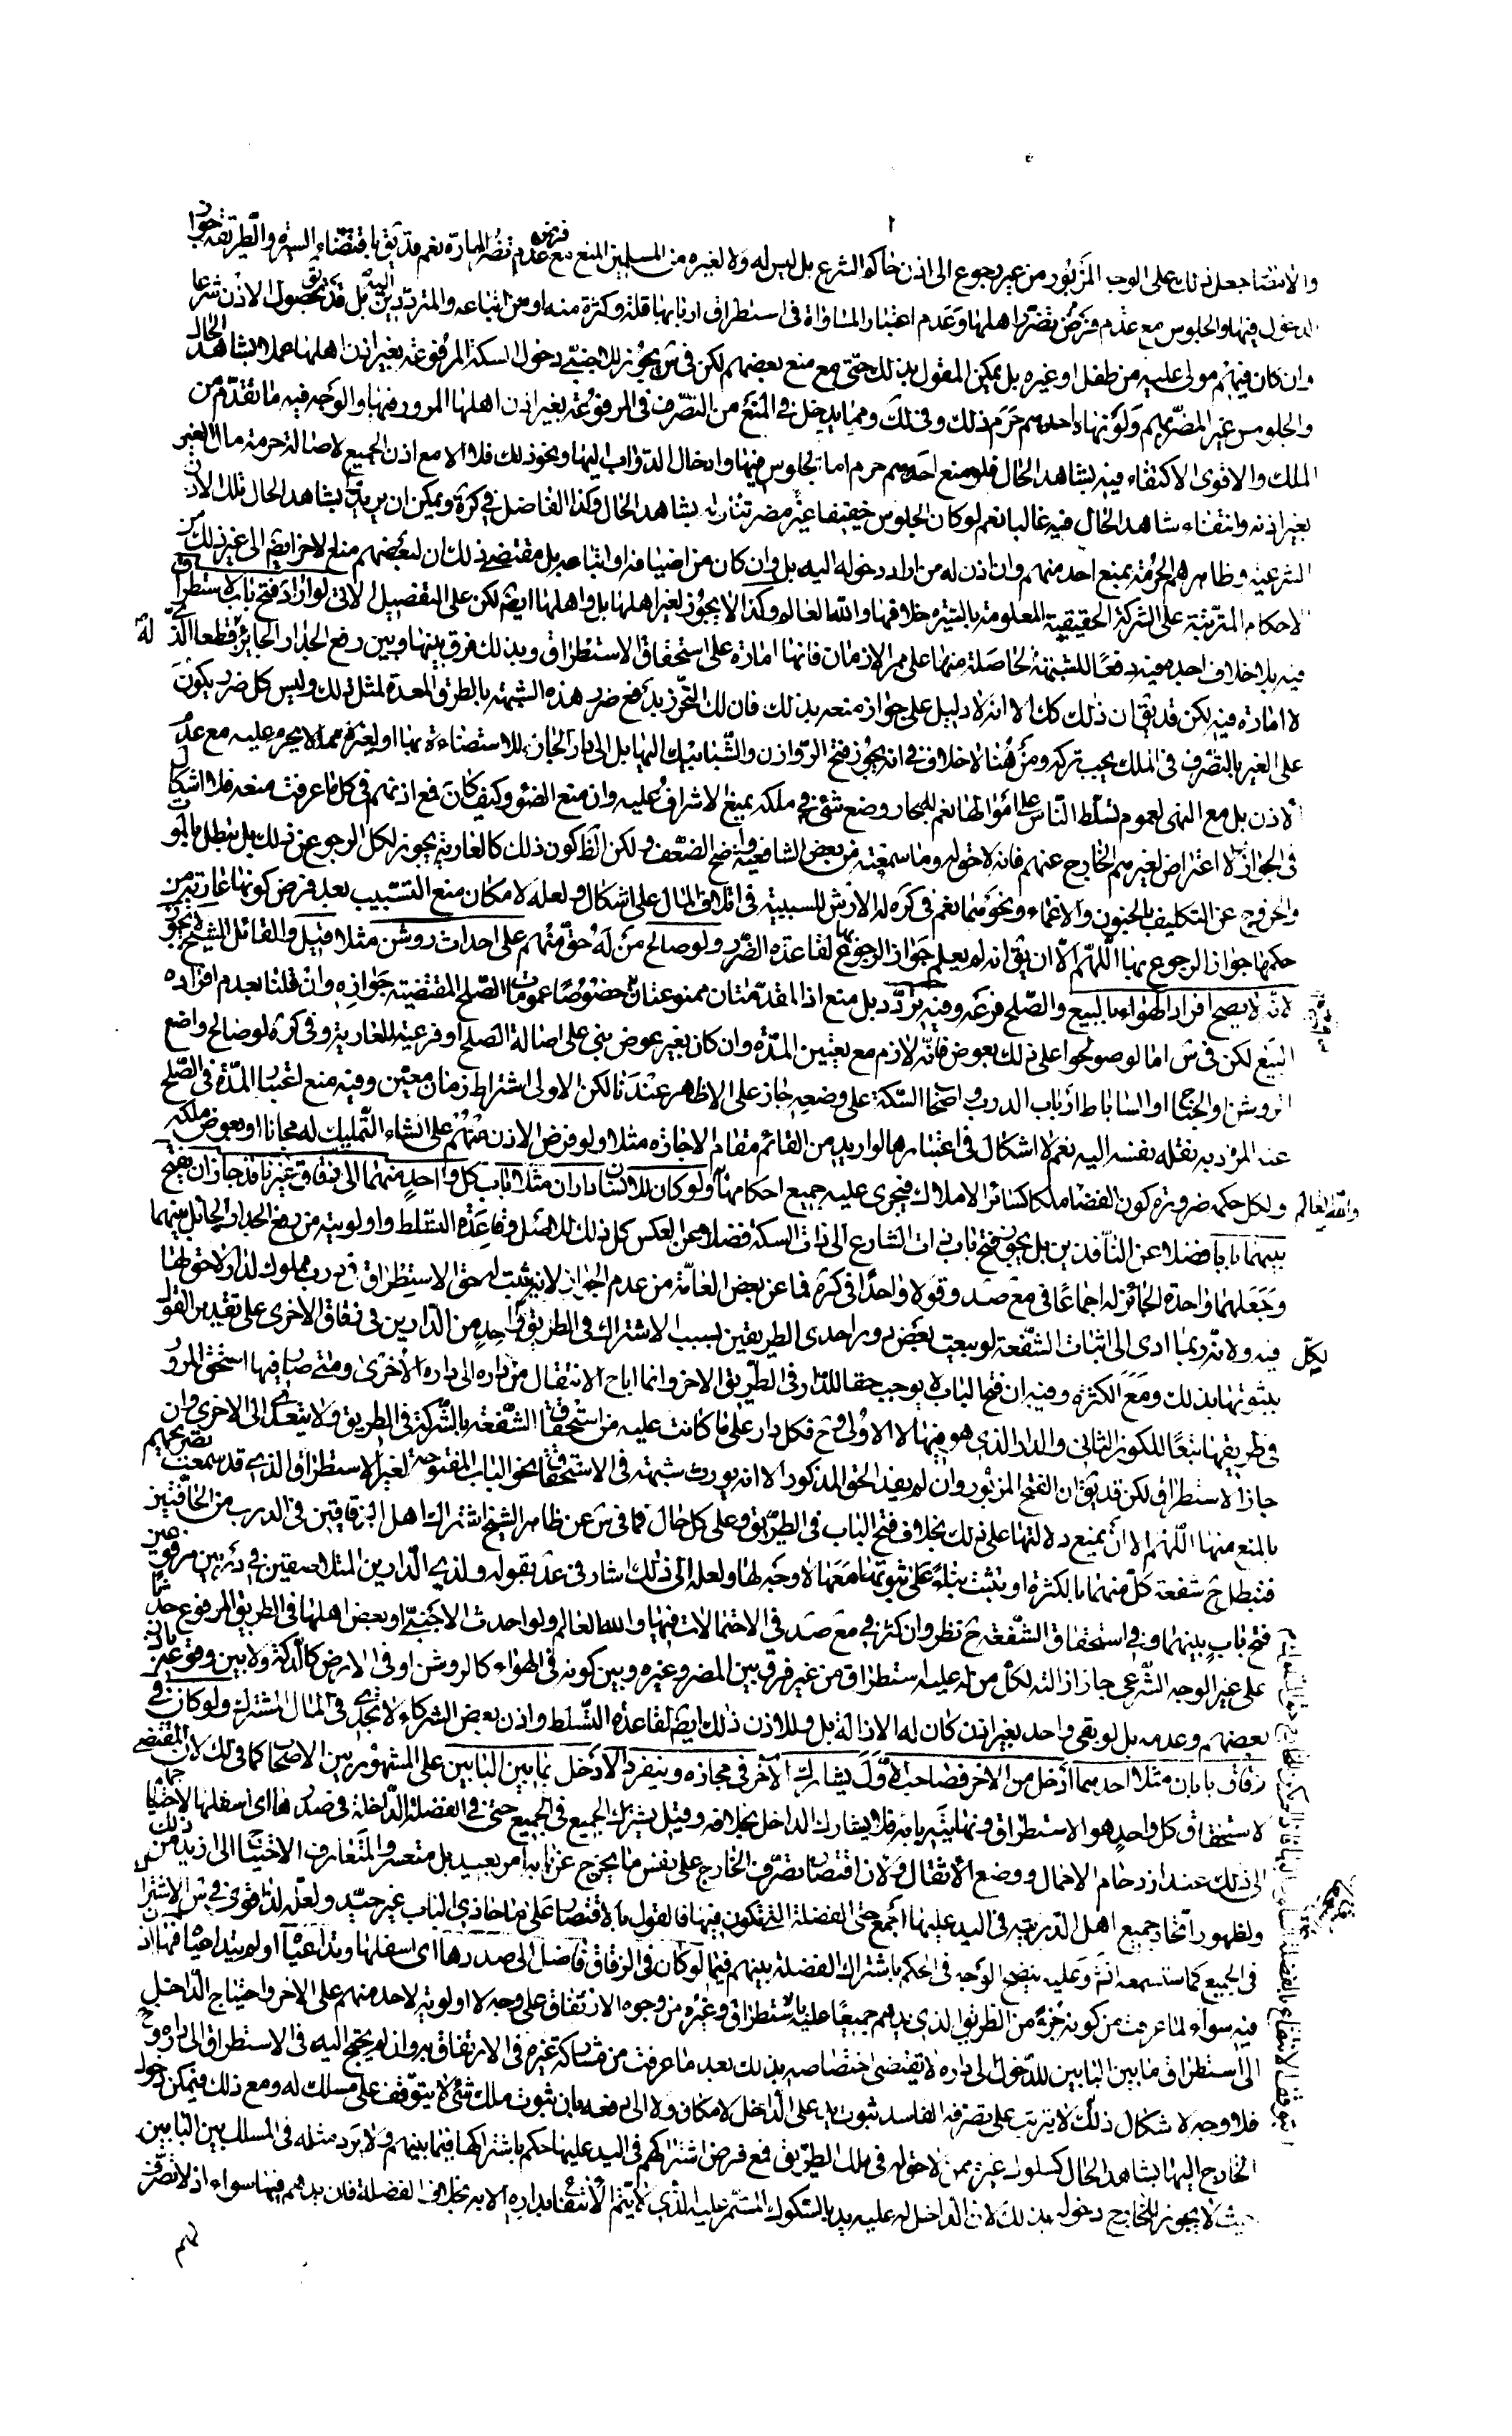 والاقتضا جعل ذلك على الوجه المزبور من غير رجوع الى اذن حاكم الشرع بل ليس له ولا لغيره من المسلمين المنع مع فرض عدم تضرر المارة نعم قد يق باقتضاء السيرة والطريقة جواز
الدخول فيها والجلوس مع عدم فرض تضرر اهلها وعدم اعتبار المساواة في استطراق اربابها قلة وكثرة منه او من اتباعه والمترددين اليه بل قد يق بحصول الاذن شرعا
وان كان فيهم مولى عليه من طفل او غيره بل يمكن القول بذلك حتى مع منع بعضهم لكن في س يجوز للاجنبي دخول السكة المرفوعة بغير اذن اهلها عملا بشاهد الحال
والجلوس غير المضر بهم ولو نهاه احدهم حرم ذلك وفي لك ومما يدخل في المنع من التصرف في المرفوعة بغير اذن اهلها المرور فيها والوجه فيه ما تقدم من
الملك والاقوى الاكتفاء فيه بشاهد الحال فلو منع احدهم حرم اما الجلوس فيها وادخال الدواب اليها ونحو ذلك فلا الا مع اذن الجميع لاصالة حرمة مال الغير
بغير اذنه وانتفاء شاهد الحال فيه غالبا نعم لو كان الجلوس خفيفا غير مضر تناوله شاهد الحال وكذا الفاضل في كرة ويمكن ان يريد بشاهد الحال تلك الاذن
الشرعية وظاهرهم الحرمة بمنع احد منهم وان اذن له من اراد دخوله اليه بل وان كان من اضيافه او اتباعه بل مقتضى ذلك ان لبعضهم منع الاخر ايضم الى غير ذلك من
الاحكام المترتبة على الشركة الحقيقية المعلومة بالسيرة خلافها والله العالم وكذا لا يجوز لغير اهلها بل واهلها ايضم لكن على التفصيل الاتي لو اراد فتح باب لاستطراق
فيه بلا خلاف اجده فيه دفعا للشبهة الحاصلة منها على ممر الازمان فانها امارة على استحقاق الاستطراق وبذلك فرق بينها وبين رفع الجدار الجايز قطعا الذي له
لا امارة فيه لكن قد يق ان ذلك كك الا انه لا دليل على جواز منعه بذلك فان لك التحرز بدفع ضرر هذه الشبهة بالطرق المعدة لمثل ذلك وليس كل ضرر يكون
على الغير بالتصرف في الملك يجب تركه ومن هنا لا خلاف في انه يجوز فتح الروازن والشبابيك اليها بل الى دار الجار للاستضاءة بها او لغيره مما لا يحرم عليه مع عدم
الاذن بل مع النهي لعموم تسلط الناس على اموالها نعم للجار وضع شئ في ملكه يمنع الاشراف عليه وان منع الضوء وكيف كان فمع اذنهم في كل ما عرفت منعه فلا اشكال
في الجواز ولا اعتراض لغيرهم الخارج عنهم فانه لا حق له وما سمعته من بعض الشافعية واضح الضعف ولكن الظ كون ذلك كالعارية يجوز لكل الرجوع عن ذلك بل يبطل بالموت
والخروج عن التكليف بالجنون والاغماء ونحوهما نعم في كره له الارش للسببية في اتلاف المال على اشكال ولعله لامكان منع التسبيب بعد فرض كونها عارية من
حكمها جواز الرجوع بها اللهم الا ان يق انه لم يعلم جواز الرجوع بها لقاعدة الضرر ولو صالح من له حق منهم على احداث روشن مثلا قيل والقائل الشيخ لا يجوز
لانه لا يصح افراد الهواء بالبيع والصلح فرعه وفيه تردد بل منع اذ المقدمتان ممنوعتان خصوصا عمومات الصلح المقتضية جوازه وان قلنا بعدم افراده
البيع لكن في س اما لو صولحوا على ذلك بعوض فانه لازم مع تعيين المدة وان كان بغير عوض بني على اصالة الصلح او فرعيته للعارية وفي كره لو صالح واضع
الروشن والجناح او الساباط ارباب الدرب واصحاب السكة على وضعه جاز على الاظهر عندنا لكن الاولى اشتراط زمان معين وفيه منع اعتبار المدة في الصلح
عند المؤد به بقتله بنفسه اليه نعم لا اشكال في اعتبارها لو اريد من القائم مقام الاجازة مثلا ولو فرض الاذن منهم على انشاء التمليك له مجانا او بعوض ملكه
والله العالم ولكل حكمه ضرورة كون الفضا ملكا كسائر الاملاك فيجري عليه جميع احكامها ولو كان للانسان داران مثلا باب كل واحد منهما الى زقاق غير نافذ جاز ان يفتح
بينهما بابا فضلا عن النافذين بل يجوز فتح باب ذات الشارع الى ذات السكة فضلا عن العكس كل ذلك للاصل وقاعدة التسلط واولويته من رفع الجدار الحائل بينهما
وجعلهما واحدة الجائز له اجماعا في مع صد وقولا واحدا في كره فما عن بعض العامة من عدم الجواز لانه يثبت له حق الاستطراق في درب مملوك لدار لا حق لها
لكل فيه ولانه ربما ادى الى اثبات الشفعة لو بيعت بعض دور احدى الطريقين بسبب الاشتراك في الطريق لكل واحد من الدارين في زقاق الاخرى على تقدير القول
بثبوتها بذلك ومع الكثرة وفيه ان فتح الباب لا يوجب حقا للدار في الطريق الاخر وانما اباح الانتقال من داره الى داره الاخرى ومتى صار فيها استحق المرور
في طريقها تبعا للكون الثاني والدار الذي هو فيها لا الاولى وح فكل دار على ما كانت عليه من استحقاق الشفعة بالشركة في الطريق ولا يتعدى الى الاخرى وان
جاز الاستطراق لكن قد يق ان الفتح المزبور وان لم يفد الحق المذكور الا انه يورث شبهة في الاستحقاق نحو الباب المفتوحة لغير الاستطراق الذي قد سمعت تصريحهم
بالمنع منها اللهم الا ان يمنع دلالتها على ذلك بخلاف فتح الباب في الطريق وعلى كل حال فما في س عن ظاهر الشيخ اشتراك اهل الزقاقين في الدرب من الجانبين
فتبطل ح شفعة كل منهما بالكثرة او يثبت بناء على ثبوتها معها لا وجه لها ولعله الى ذلك اشار في عد بقوله ولذي الدارين المتلاصقتين في دربين مرفوعين
فتح باب بينهما وفي استحقاق الشفعة ح نظر وان كثر في مع صد في الاحتمالات فيها والله العالم ولو احدث الاجنبي او بعض اهلها في الطريق المرفوع حدثا
على غير الوجه الشرعي جاز ازالته لكل من له عليه استطراق من غير فرق بين المضر وغيره وبين كونه في الهواء كالروشن او في الارض كالدكة ولا بين وقوعه باذن
بعضهم وعدمه بل لو بقي واحد بغير اذن كان له الازالة بل وللاذن ذلك ايضم لقاعدة التسلط واذن بعض الشركاء لا تجدي في المال المشترك ولو كان في
زقاق بابان مثلا احدهما ادخل من الاخر فصاحب الاول يشارك الاخر في مجازه وينفرد الادخل بما بين البابين على المشهور بين الاصحاب كما في لك لان المقتضي
لاستحقاق كل واحد هو الاستطراق ونهايته بابه فلا يشارك الداخل بخلافه وقيل يشترك الجميع في الجميع حتى في الفضلة الداخلة في صدرها اي اسفلها لاحتياجهم
الى ذلك عند ازدحام الاحمال ووضع الاثقال ولان اقتصار تصرف الخارج على نفس ما يخرج عن بابه امر بعيد بل متعسر والمتعارف الاحتياج الى ازيد من ذلك
ولظهور اتحاد جميع اهل الدريبة في اليد عليها اجمع حتى الفضلة التي تكون فيها فالقول بالاقتصار على ما حاذى الباب غير جيد ولعله لذا قوى في س الاشتراك
في الجميع كما ستسمعه انش وعليه يتضح الوجه في الحكم باشتراك الفضلة بينهم فيما لو كان في الزقاق فاضل الى صدرها اي اسفلها وتداعياه او لم يتداعياه
فيه سواء لما عرفت من كونه جزء من الطريق الذي يدهم جميعا عليه بالاستطراق وغيره من وجوه الارتفاق على وجه لا اولوية لاحد منهم على الاخر واحتياج الداخل
الى استطراق ما بين البابين للدخول الى داره لا يقتضي اختصاصه بذلك بعد ما عرفت من مشاركة غيره في الارتفاق به وان لم يحتج اليه في الاستطراق الى داره وح
فلا وجه لاشكال ذلك لا يترتب على تصرفه الفاسد ثبوت يد على الداخل لامكان ولا الى دفعه بان ثبوت ملك شئ لا يتوقف على مسلك له ومع ذلك فيمكن دخول
الخارج اليها بشاهد الحال كسلوك غيره ممن لا حق له في تلك الطريق فمع فرض اشتراكهم في اليد عليها حكم باشتراكها فيما بينهم ولا يرد مثله في المسلك بين البابين
حيث لا يجوز للخارج دخوله بذلك لان الداخل له عليه يد بالسلوك المستمر عليه الذي لا يتم الانتفاع بداره الا به بخلاف الفضلة فان يدهم فيها سواء اذ لا تصرف
لهم